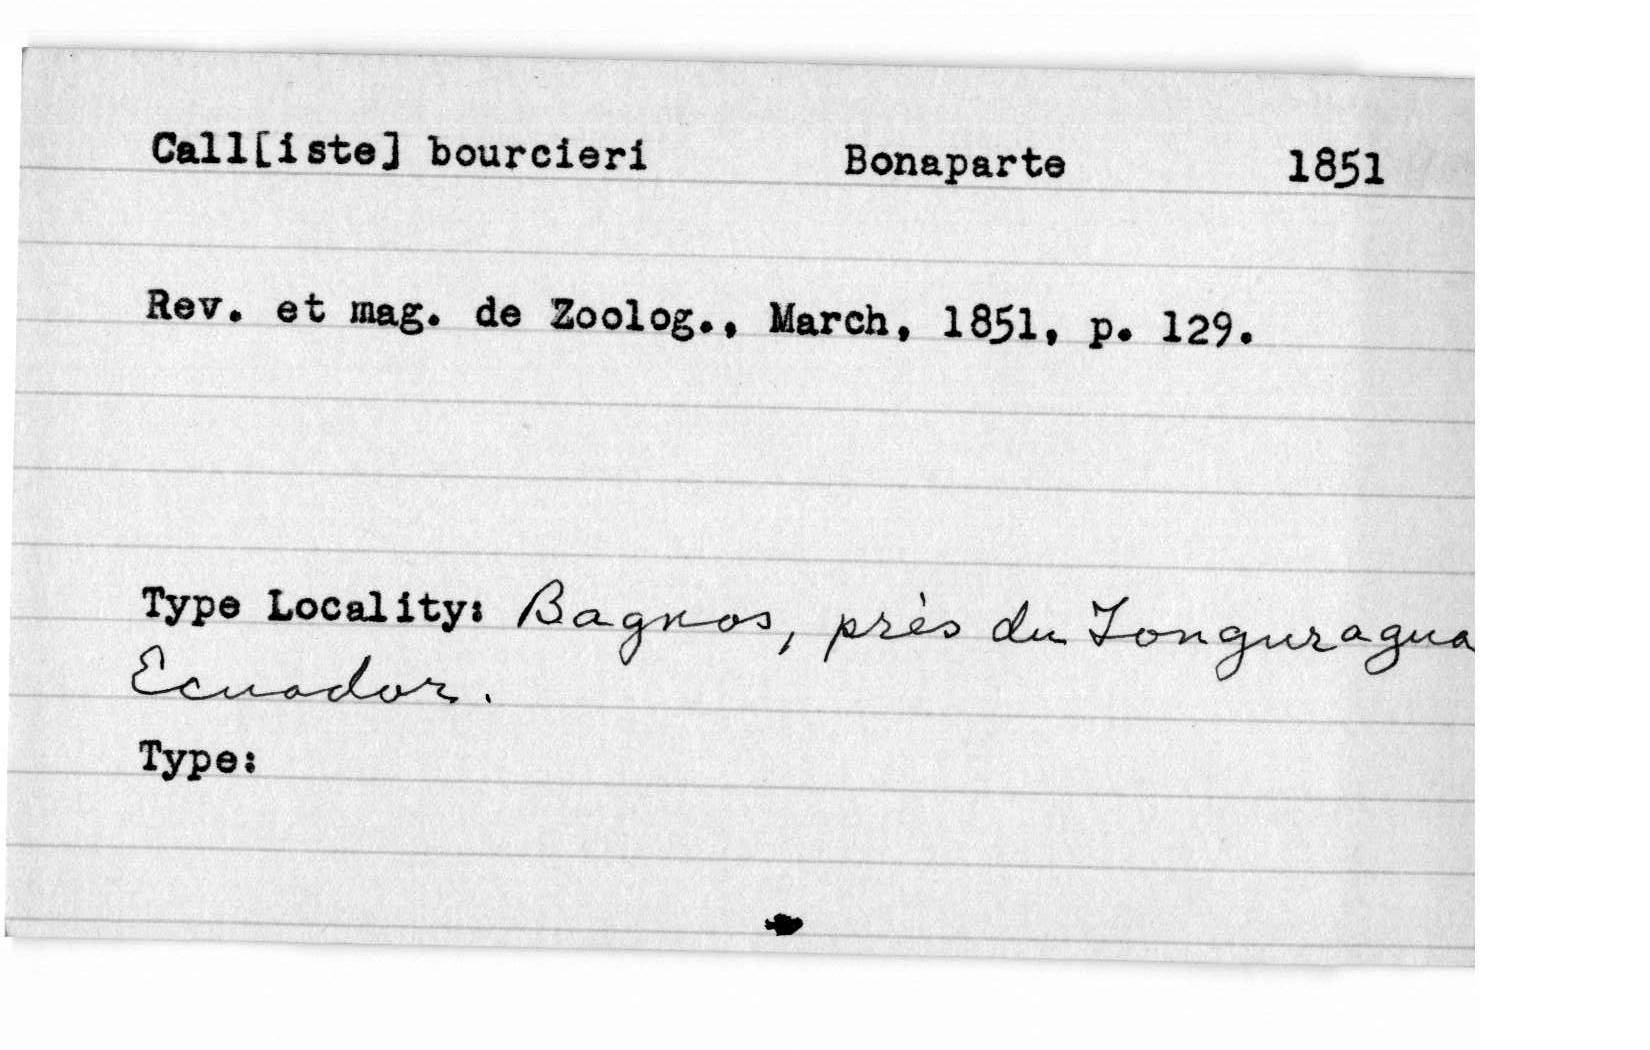 Call[iste] bourcieri Bonaparte 1851
Rev. et mag. de Zoolog., March, 1851, p. 129.
Type Locality: Bagnos, près du Tonguragua
Ecuador.
Type: